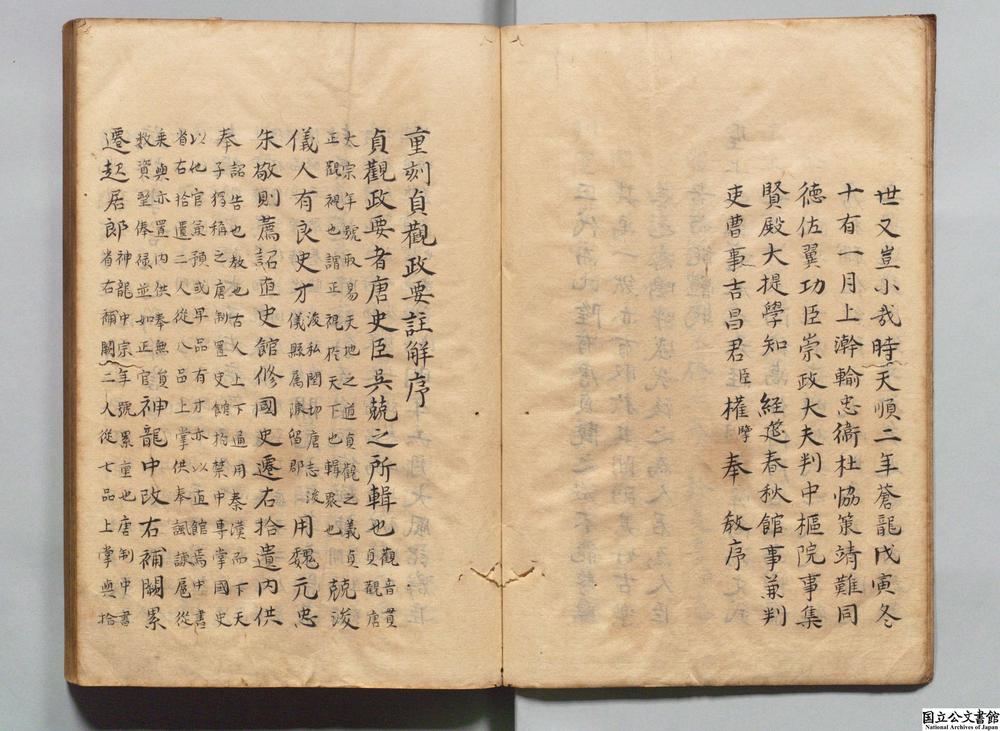 世又豈小哉時天順二年蒼龍戊寅冬
十有一月上澣輸忠衛杜恊策靖難同
德佐翼功臣崇政大夫判中樞院事集
賢殿大提學知 經筵春秋館事兼判
吏曹事吉昌君臣權擥奉 敎序
重刻貞觀政要註解序
貞觀政要者唐史臣吳兢之所輯也觀音貫貞觀唐
太宗年號取易天地之道貞觀之義貞
正觀視也謂正視於天下也輯聚也兢浚
儀人有良史才浚私閏切唐志浚儀縣属陳留郡用魏元忠
朱敬則薦詔直史館修國史遷右拾遺内供
奉詔告也敎也古人上下通用秦漢而下天子獨稱之唐制置史館扵禁中專掌國史
以他官兼預或卑品有才亦以直館焉中書省右拾遺二人從八品上掌供奉諷諫扈從
乗輿亦置内供奉無員數資望俸祿並如正官神龍中改右補闕累
遷起居郎神龍中宗年號累重也唐制中書省右補闕二人從七品上掌與拾
国立公文書館
National Archives of Japan